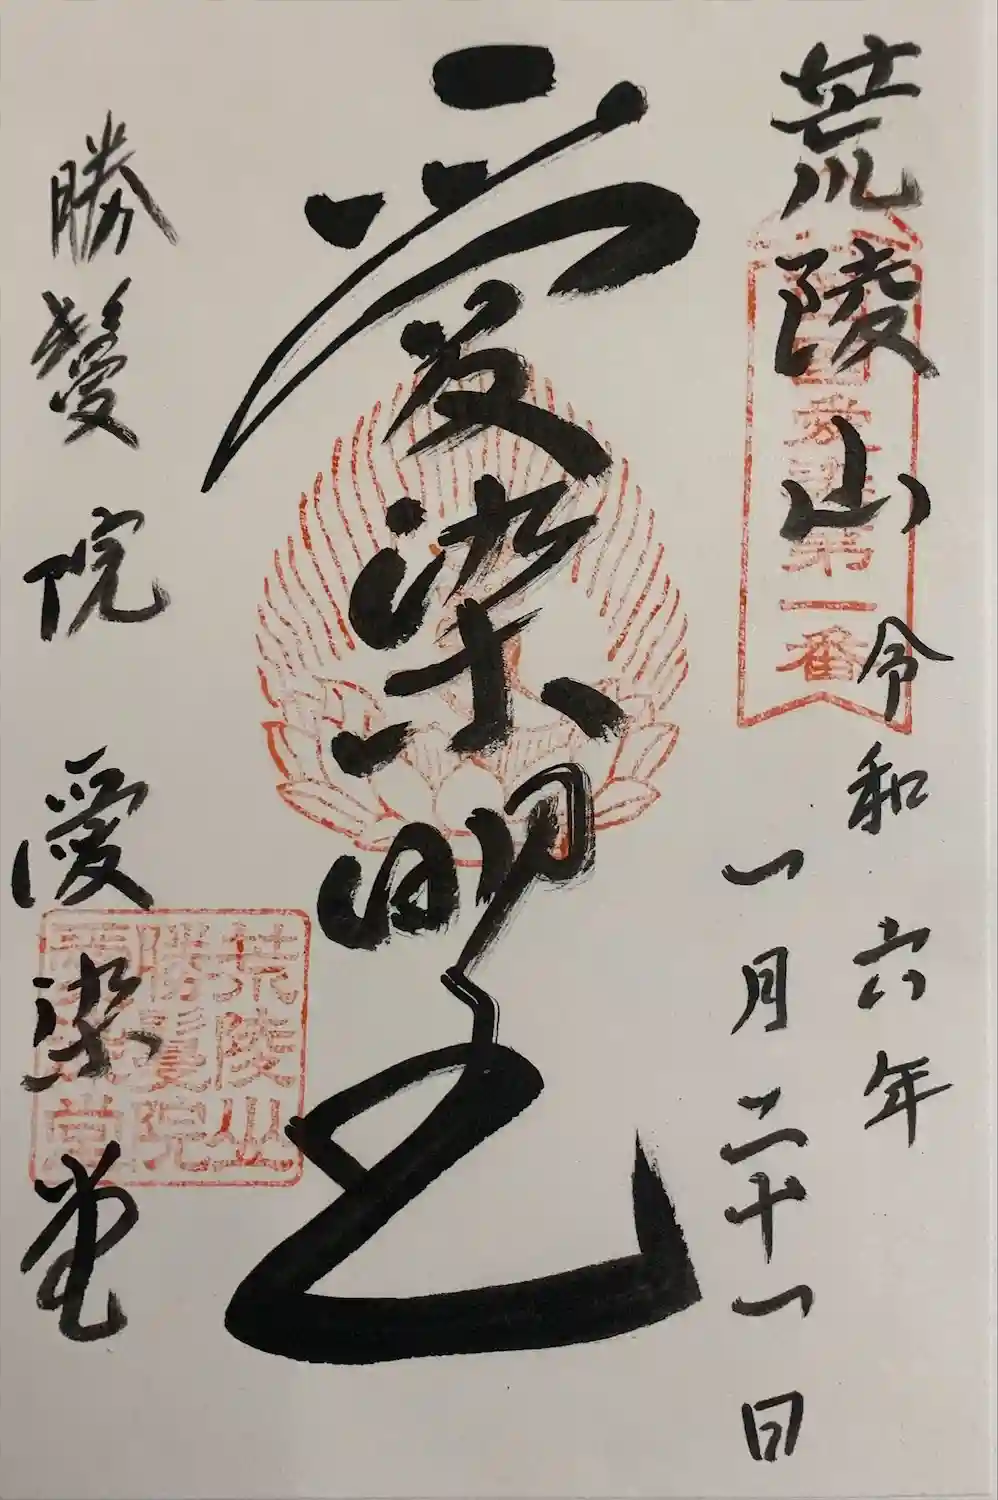 荒陵山
令和六年
一月二十一日
愛染明王
勝鬘院 愛染堂
西国愛染第一番
荒陵山
勝鬘院
愛染堂